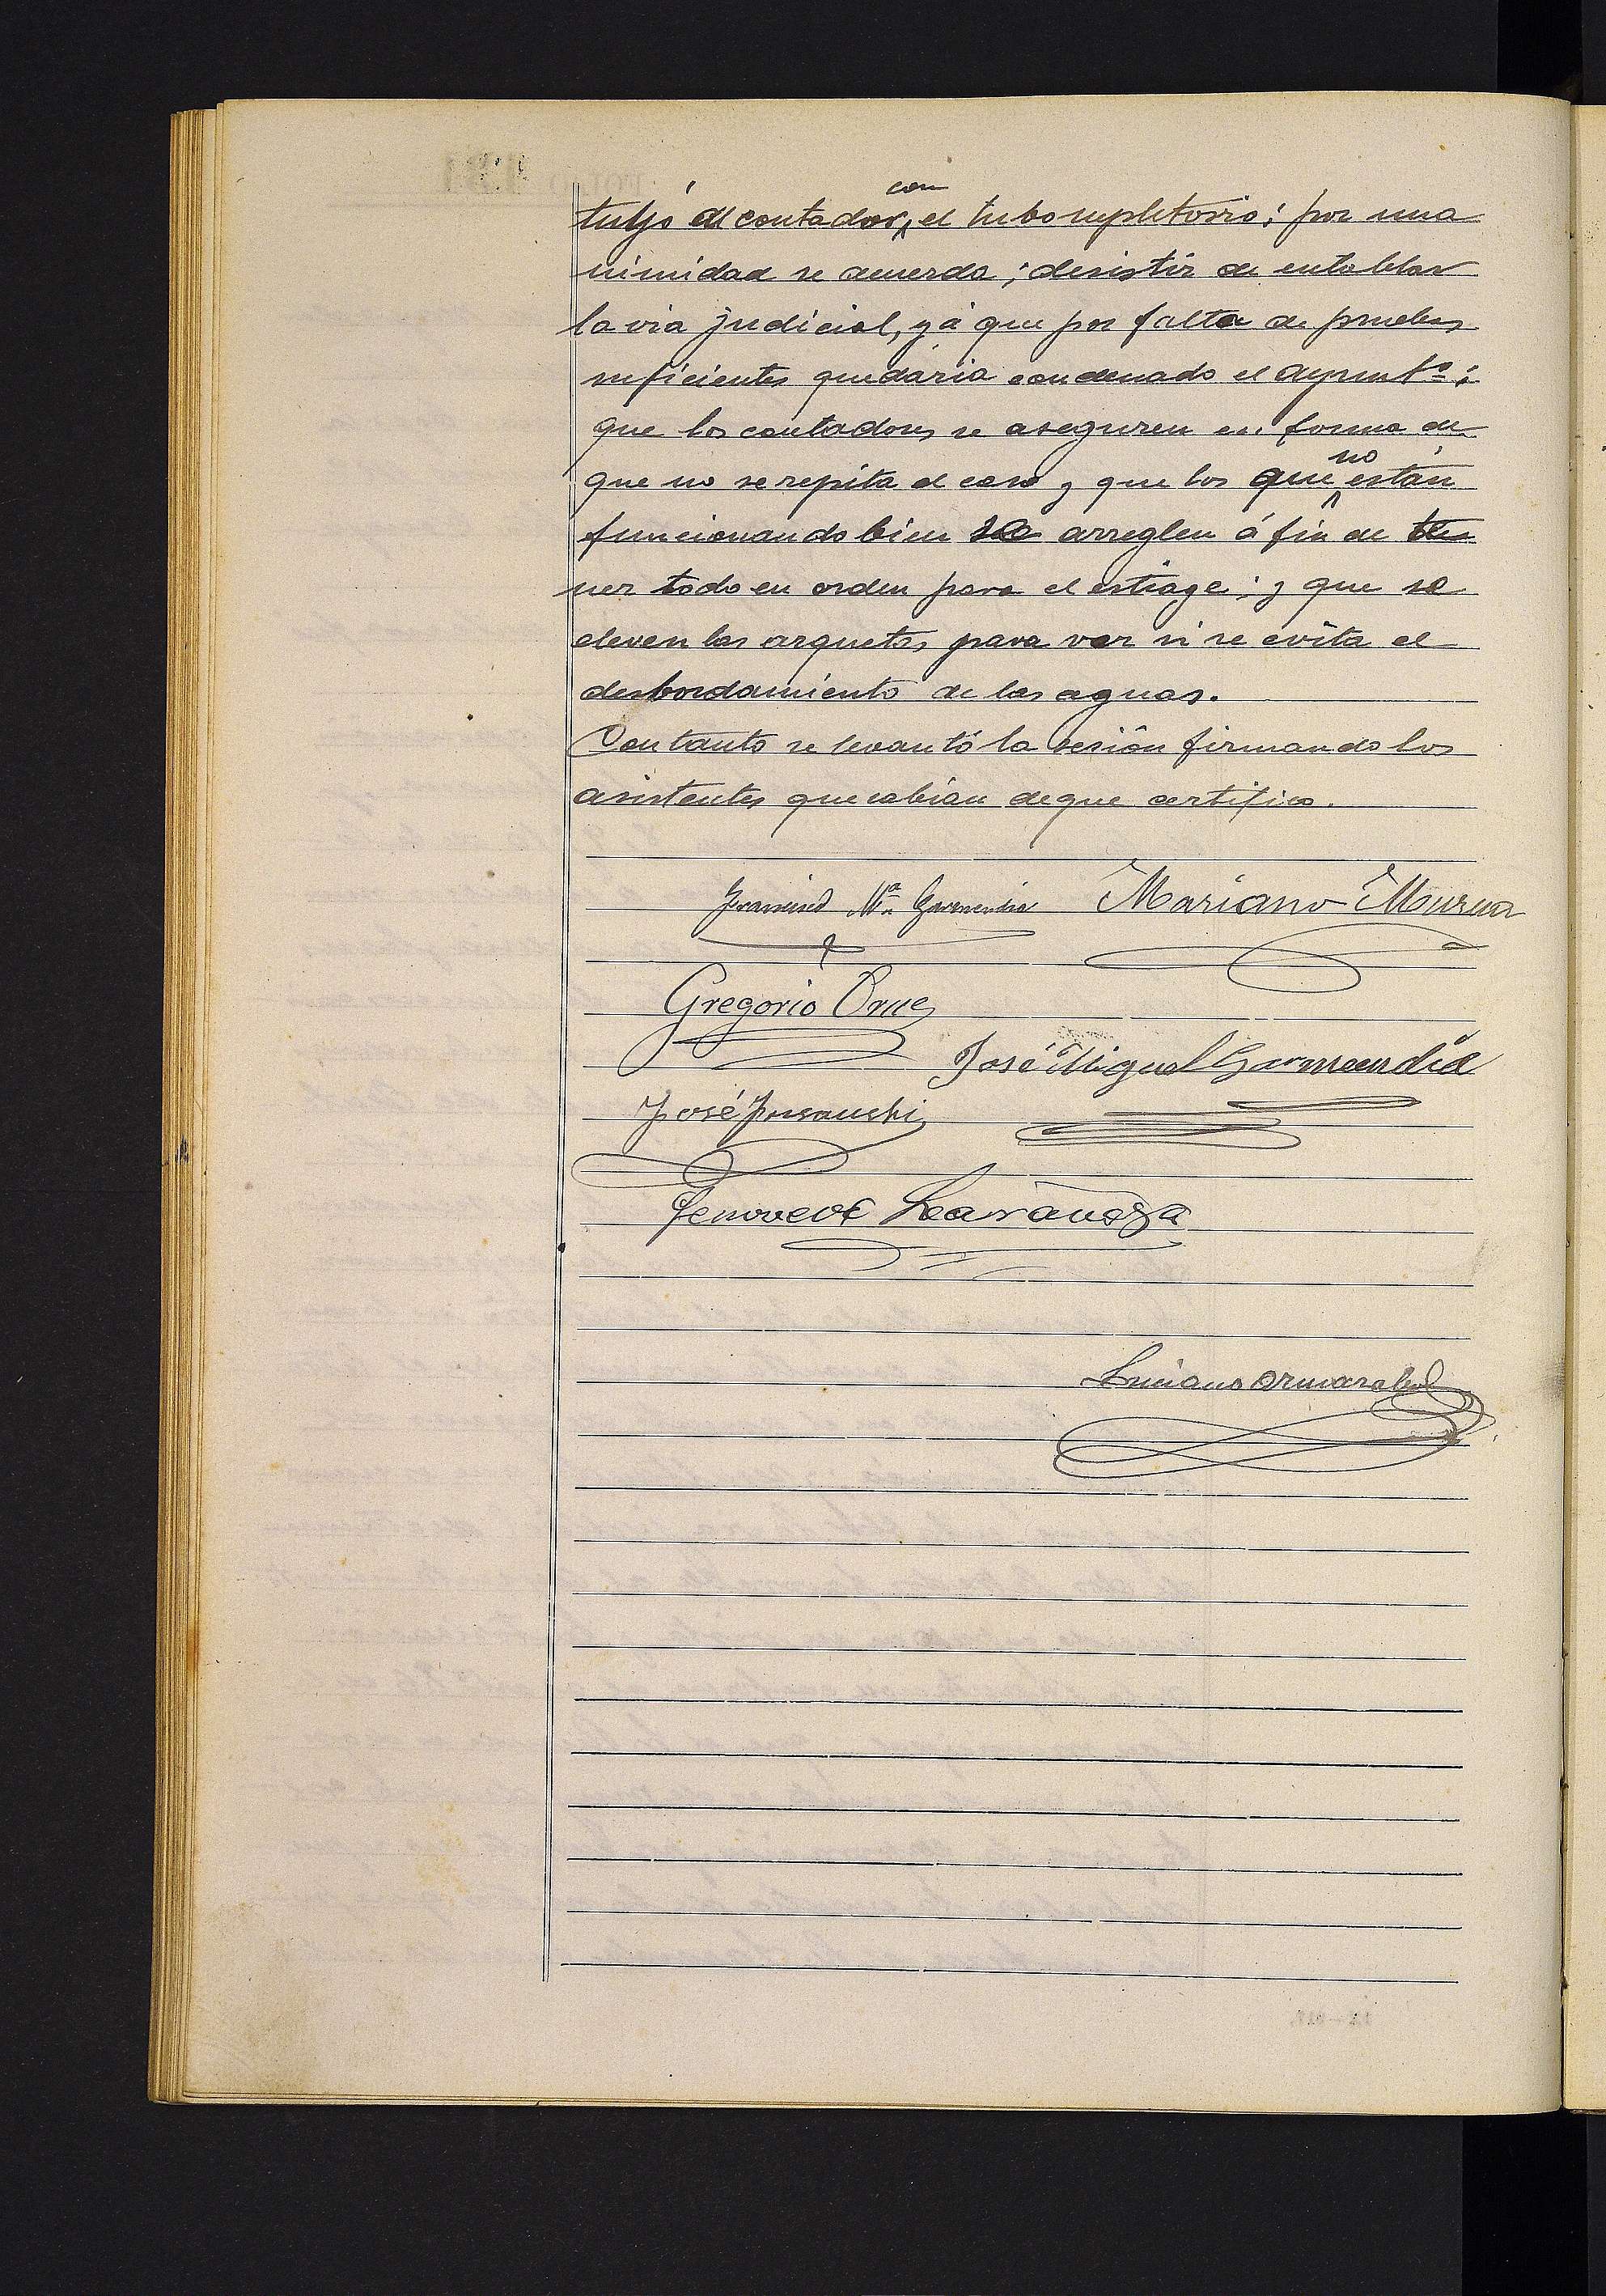 al contador con el tubo supletorio; por una
nimidad se acuerda; desistir de entablar
la via judicial, yá que por falta de pruebas
suficientes quedaria condenado el ayuntº;
que los contadores se aseguren en forma de
que no se repita el caso y que los que no están
funcionando bien se arreglen á fin de te
ner todo en orden para el estiage; y que se
eleven las arquetas para ver si se evita el
desbordamiento de las aguas.
Con tanto se levantó la sesión firmando los
asistentes que sabian de que certifico.
Francisco Mª Garmendia Mariano Murua
Gregorio Orue
José Miguel Garmendia
José Insausti
Luciano